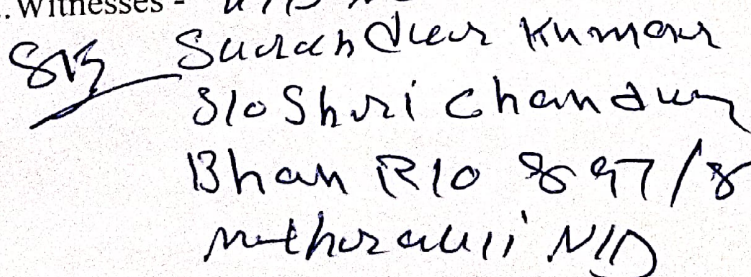 Witnesses -
Surender Kumar
S/o Shri Chander
Bhan R/o 897/8
Mehrauli N/D